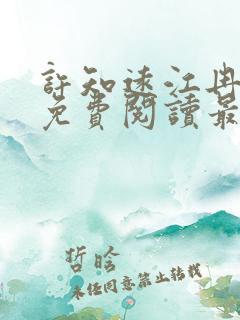 許知遠江冉
免費閱讀最
哲晗
未經同意禁止轉載